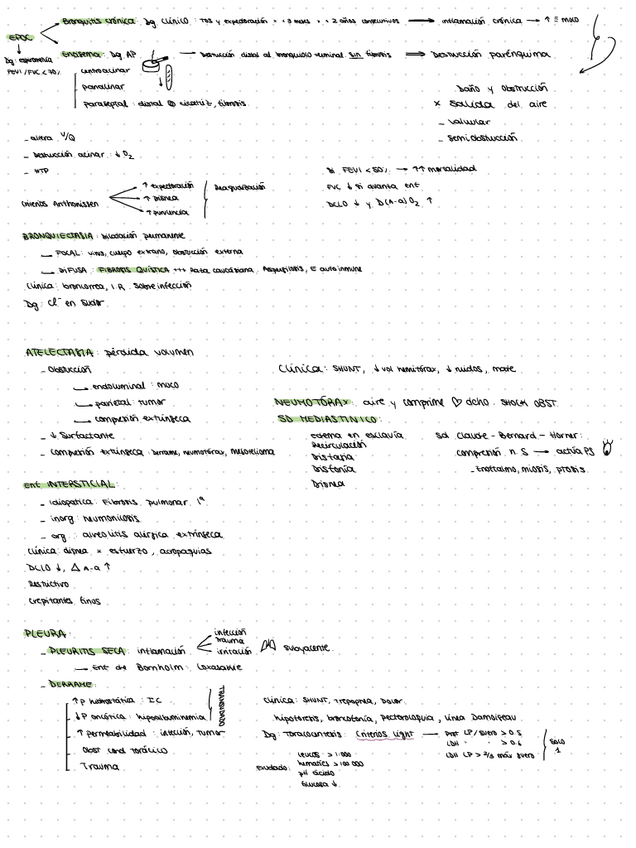 Bronquitis crónica Dg clínico : TOS y expectoración > 3 meses × 2 años consecutivos → inflamación crónica → ↑ moco
EPOC
Enfisema Dg AP → Destrucción distal al bronquiolo terminal sin fibrosis ⇒ Destrucción parénquima
Dg espirometría
FEV1/FVC < 70%
centroacinar
panacinar
paraseptal : distal cicatriz, fibrosis
Daño y obstrucción
× Salida del aire
- valvular
- semiobstrucción
- altera V/Q
- Destrucción acinar : ↓ O2
- HTP
Si FEV1 < 50% → ↑↑ mortalidad
FVC ↓ si avanza enf
DLCO ↓ y D(A-a)O2 ↑
Criterios Anthonissen
↑ expectoración
↑ Disnea
↑ purulencia
Reagudización
BRONQUIECTASIA : Dilatación permanente
→ FOCAL : virus, cuerpo extraño, obstrucción externa
→ DIFUSA : FIBROSIS QUÍSTICA +++ Raza caucasiana. Aspergilosis, E autoinmune
Clínica : broncorrea, I.R. Sobreinfección
Dg : Cl⁻ en sudor
ATELECTASIA : pérdida volumen
- Obstrucción
→ endoluminal : moco
→ parietal : tumor
→ compresión extrínseca
- ↓ Surfactante
- Compresión extrínseca : Derrame, neumotórax, mesotelioma
Clínica : SHUNT, ↓ vol hemitórax, ↓ ruidos, mate
NEUMOTÓRAX : aire y comprime ♡ dcho. SHOCK OBST.
SD MEDIASTINICO :
edema en esclavina
Recirculación
Disfagia
Disfonía
Disnea
Sd Claude - Bernard - Horner :
compresión n. S → actúa PS
- Enoftalmo, miosis, ptosis
Enf INTERSTICIAL :
- Idiopática : Fibrosis pulmonar 1ª
- inorg : Neumoniosis
- org : alveolitis alérgica extrínseca
Clínica : disnea × esfuerzo, acropaquias
DLCO ↓, Δ A-a ↑
Restrictivo
Crepitantes finos
PLEURA :
- PLEURITIS SECA : inflamación
infección
Trauma
irritación
subyacente
→ Enf de Bornholm : Coxsackie
- DERRAME :
↑P hidrostática : IC
↓P oncótica : hipoalbuminemia
TRASUDADO
↑ permeabilidad : infección, tumor
Obst cond torácico
Trauma
Clínica : SHUNT, Trepopnea, Dolor
hipotensión, broncofonía, pectoriloquia, línea Damoiseau
Dg : Toracocentesis : Criterios Light →
Prot LP/suero > 0.5
LDH " " > 0.6
LDH LP > 2/3 máx suero
SOLO 1
Exudado :
Leucos : > 1 000
hematíes > 100 000
pH ácido
Glucosa ↓